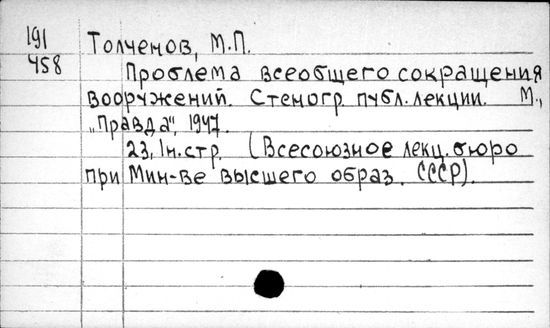 191
458
Толченов, М.П.
Проблема всеобщего сокращения
вооружений. Стеногр. публ. лекции. М.,
„Правда", 1947.
23, 1н.стр. (Всесоюзное лекц. бюро
при Мин-ве высшего образ. СССР).